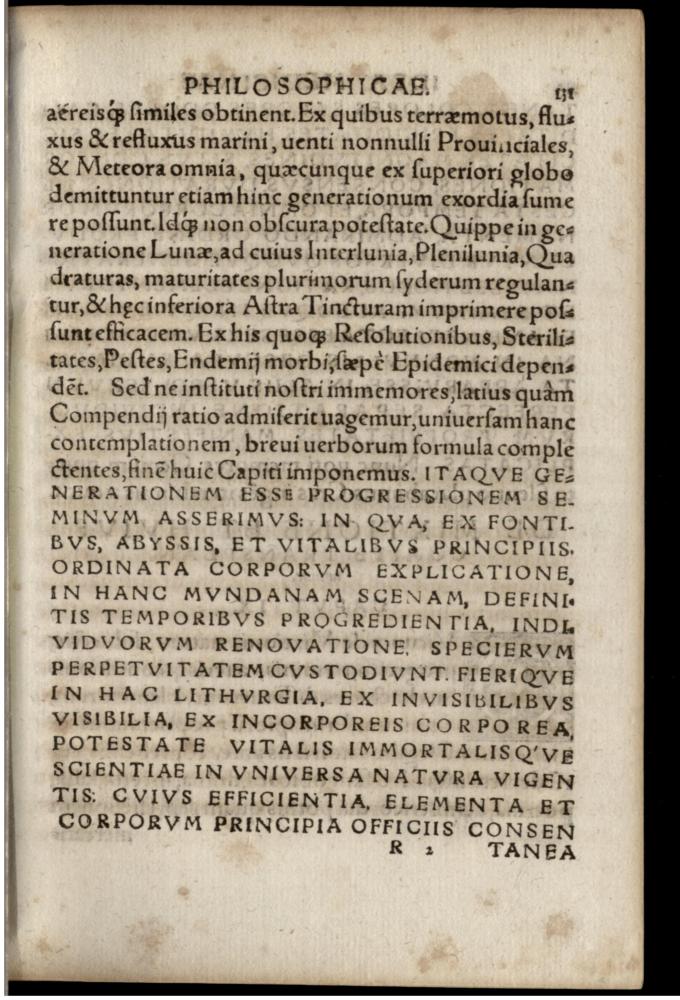 PHILOSOPHICAE. 131
aëreisq́; ſimiles obtinent. Ex quibus terræmotus, flu⸗
xus & refluxus marini, uenti nonnulli Prouinciales,
& Meteora omnia, quæcunque ex ſuperiori globo
demittuntur etiam hinc generationum exordia ſume
re poſſunt. Idq́; non obſcura poteſtate. Quippe in ge⸗
neratione Lunæ, ad cuius Interlunia, Plenilunia, Qua
draturas, maturitates plurimorum ſyderum regulan⸗
tur, & hęc inferiora Aſtra Tincturam imprimere poſ⸗
ſunt efficacem. Ex his quoq; Reſolutionibus, Sterili⸗
tates, Peſtes, Endemij morbi, ſæpè Epidemici depen⸗
dēt. Sed ne inſtituti noſtri immemores, latius quàm
Compendij ratio admiſerit uagemur, uniuerſam hanc
contemplationem, breui uerborum formula comple
ctentes, finē huic Capiti imponemus. ITAQVE GE⸗
NERATIONEM ESSE PROGRESSIONEM SE-
MINVM ASSERIMVS: IN QVA, EX FONTI-
BVS, ABYSSIS, ET VITALIBVS PRINCIPIIS,
ORDINATA CORPORVM EXPLICATIONE,
IN HANC MVNDANAM SCENAM, DEFINI-
TIS TEMPORIBVS PROGREDIENTIA, INDI-
VIDVORVM RENOVATIONE, SPECIERVM
PERPETVITATEM CVSTODIVNT. FIERIQ'VE
IN HAC LITHVRGIA, EX INVISIBILIBVS
VISIBILIA, EX INCORPOREIS CORPOREA,
POTESTATE VITALIS IMMORTALISQ'VE
SCIENTIAE IN VNIVERSA NATVRA VIGEN
TIS: CVIVS EFFICIENTIA, ELEMENTA ET
CORPORVM PRINCIPIA OFFICIIS CONSEN
R 2 TANEA